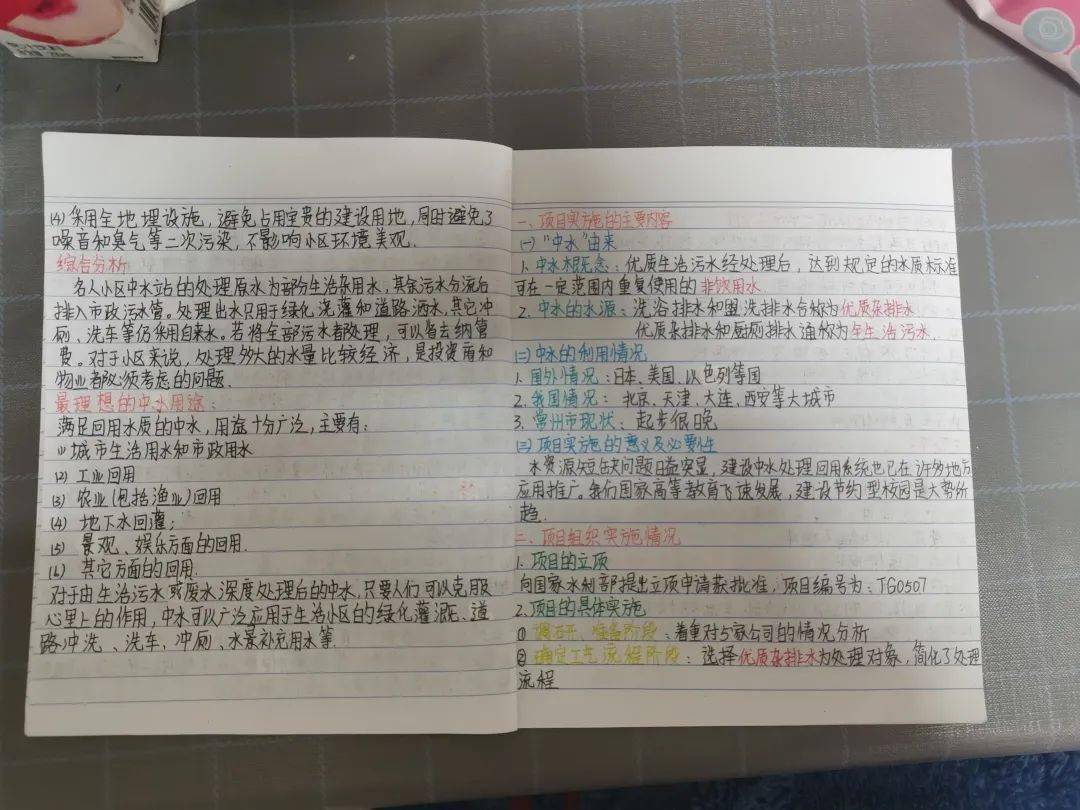 (4) 采用全地埋设施，避免占用宝贵的建设用地，同时避免了
噪音和臭气等二次污染，不影响小区环境美观.
综合分析
名人小区中水站的处理原水为部分生活杂用水，其余污水分流后
排入市政污水管。处理出水只用于绿化浇灌和道路洒水，其它冲
厕、洗车等仍采用自来水。若将全部污水都处理，可以省去纳管
费。对于小区来说，处理较大的水量比较经济，是投资商和
物业都必须考虑的问题.
最理想的中水用途：
满足回用水质的中水，用途十分广泛，主要有：
(1) 城市生活用水和市政用水
(2) 工业回用
(3) 农业(包括渔业)回用
(4) 地下水回灌；
(5) 景观、娱乐方面的回用.
(6) 其它方面的回用.
对于由生活污水或废水深度处理后的中水，只要人们可以克服
心里上的作用，中水可以广泛应用于生活小区的绿化灌溉、道
路冲洗、洗车、冲厕、水景补充用水等.
一、项目实施的主要内容
(一) "中水"由来
1. 中水概念：优质生活污水经处理后，达到规定的水质标准
可在一定范围内重复使用的非饮用水.
2. 中水的水源：洗浴排水和盥洗排水合称为优质杂排水
优质杂排水和厨厕排水通称为生活污水.
(二) 中水的利用情况
1. 国外情况：日本、美国、以色列等国
2. 我国情况：北京、天津、大连、西安等大城市
3. 常州市现状：起步很晚
(三) 项目实施的意义及必要性
水资源短缺问题日益突显，建设中水处理回用系统也已在许多地方
应用推广。我们国家高等教育飞速发展，建设节约型校园是大势所
趋.
二、项目组织实施情况
1. 项目的立项
向国家水利部提出立项申请获批准，项目编号为：TG0507
2. 项目的具体实施
① 调研、准备阶段：着重对5家公司的情况分析
② 确定工艺流程阶段：选择优质杂排水为处理对象，简化了处理
流程